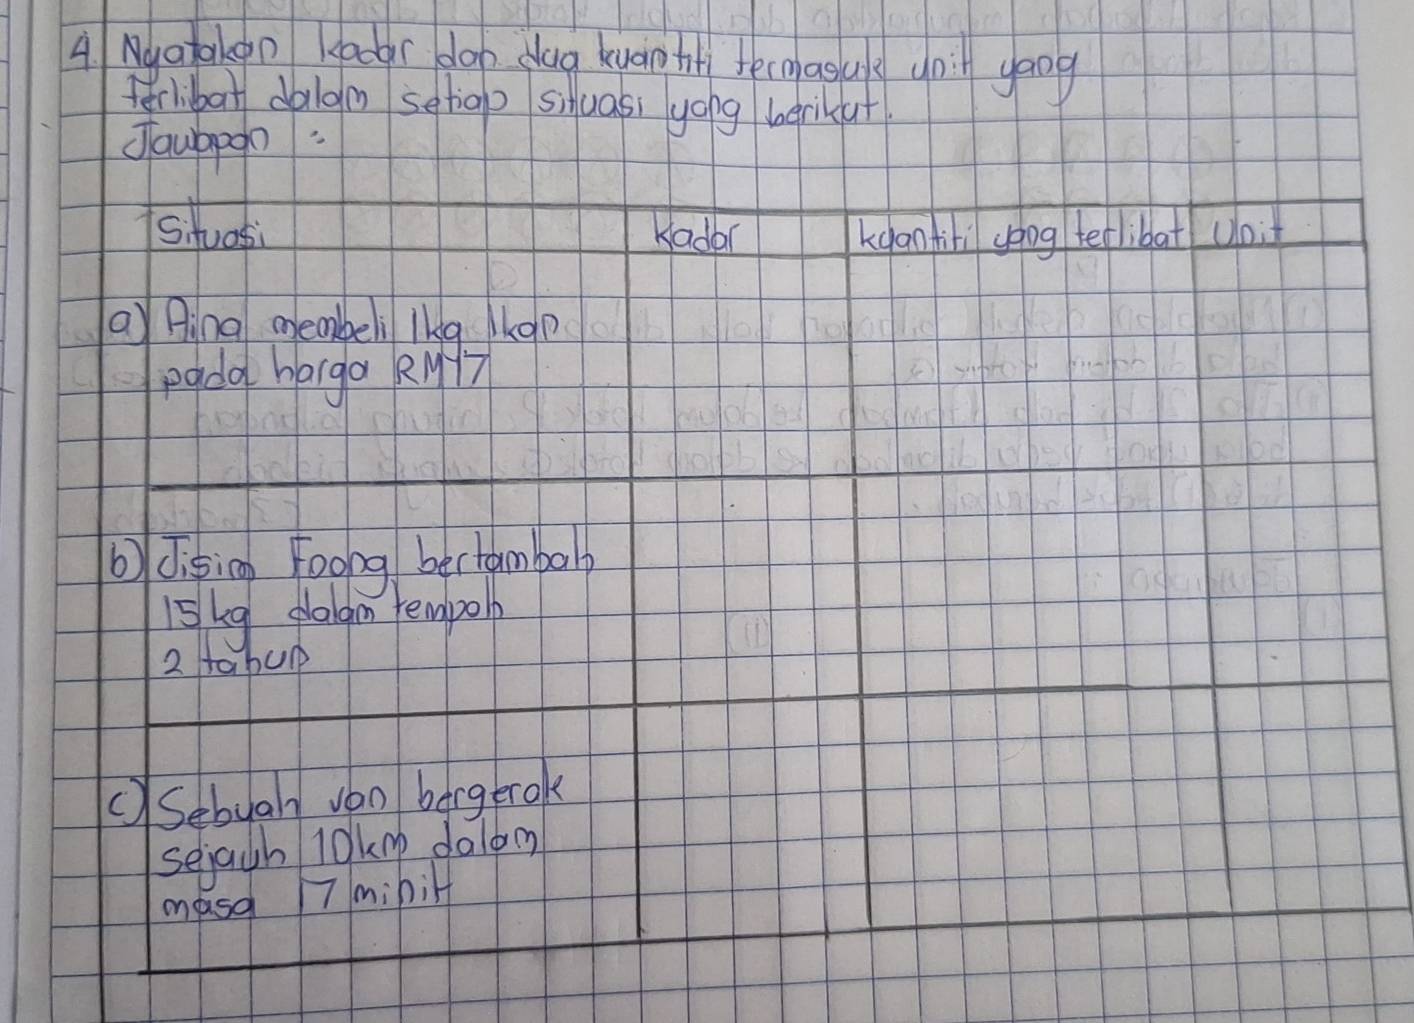 4. Nyatakan kadar dan dua kuantiti termasuk unit yang
terlibat dalam setiap situasi yang berikut.
Jawapan :
Situasi Kadar kuantiti yang terlibat Unit
a) Aina membeli 1kg ikan
pada harga RM17
b) Jisim Foong bertambah
15kg dalam tempoh
2 tahun
c) Sebuah van bergerak
sejauh 10km dalam
masa 17 minit